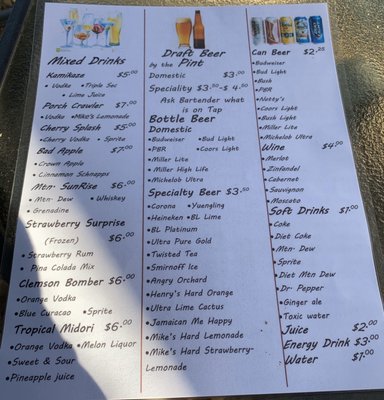 Mixed Drinks
Kamikaze $5.00
• Vodka • Triple Sec
• Lime Juice
Porch Crawler $7.00
• Vodka • Mike's Lemonade
Cherry Splash $5.00
• Cherry Vodka • Sprite
Bad Apple $7.00
• Crown Apple
• Cinnamon Schnapps
Mtn. SunRise $6.00
• Mtn. Dew • Whiskey
• Grenadine
Strawberry Surprise
(Frozen) $6.00
• Strawberry Rum
• Pina Colada Mix
Clemson Bomber $6.00
• Orange Vodka
• Blue Curacao • Sprite
Tropical Midori $6.00
• Orange Vodka • Melon Liquor
• Sweet & Sour
• Pineapple juice
Draft Beer
by the Pint
Domestic $3.00
Speciality $3.50-$ 4.50
Ask Bartender what
is on Tap
Bottle Beer
Domestic
• Budweiser • Bud Light
• PBR • Coors Light
• Miller Lite
• Miller High Life
• Michelob Ultra
Specialty Beer $3.50
• Corona • Yuengling
• Heineken • BL Lime
• BL Platinum
• Ultra Pure Gold
• Twisted Tea
• Smirnoff Ice
• Angry Orchard
• Henry's Hard Orange
• Ultra Lime Cactus
• Jamaican Me Happy
• Mike's Hard Lemonade
• Mike's Hard Strawberry-
Lemonade
Can Beer $2.25
• Budweiser
• Bud Light
• Bush
• PBR
• Natty's
• Coors Light
• Bush Light
• Miller Lite
• Michelob Ultra
Wine $4.00
• Merlot
• Zinfandel
• Cabernet
• Sauvignon
• Moscato
Soft Drinks $1.00
• Coke
• Diet Coke
• Mtn. Dew
• Sprite
• Diet Mtn Dew
• Dr. Pepper
• Ginger ale
• Toxic water
Juice $2.00
Energy Drink $3.00
Water $1.00